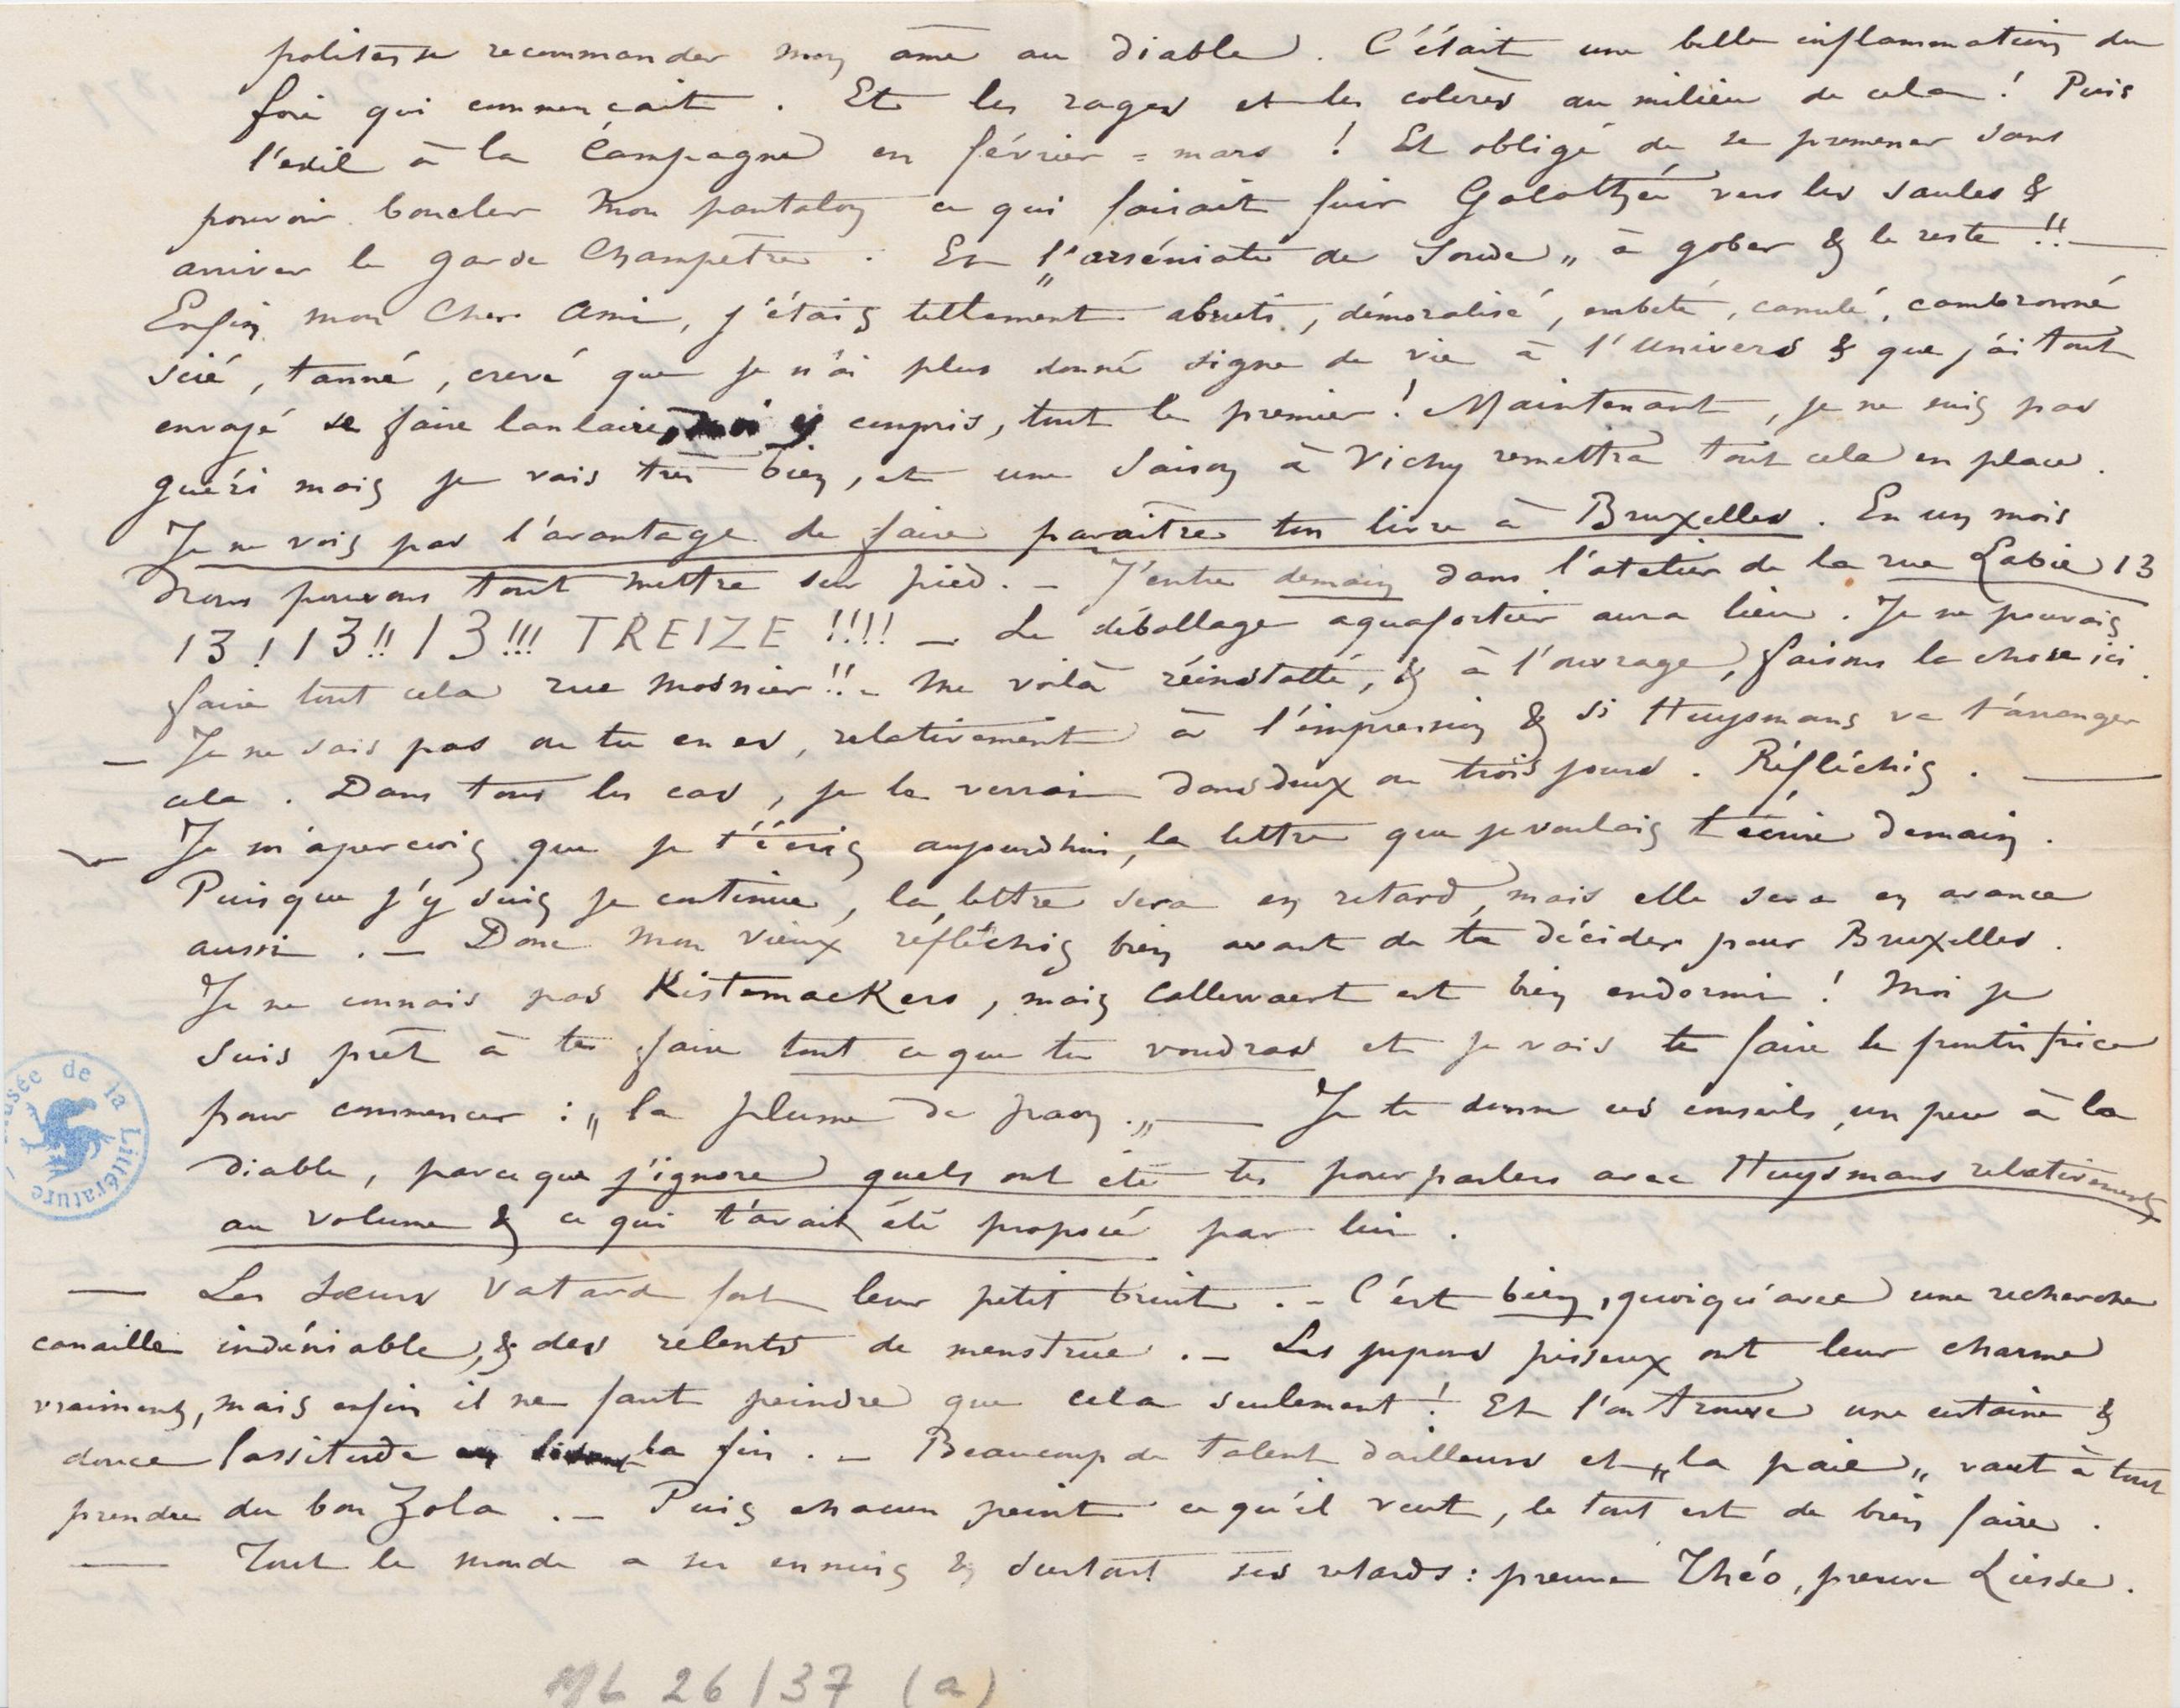 politesse recommander mon âme au diable. C'était une belle inflammation du
foie qui commençait. Et les rages et les colères au milieu de cela! Puis
l'exil à la Campagne en février = mars! Et obligé de se promener sans
pouvoir boucler mon pantalon ce qui faisait fuir Galathée vers les saules &
arriver le garde Champêtre. Et l'„arséniate de Soude„ à gober & le reste!!—
Enfin mon Cher Ami, j'étais tellement abruti, démoralisé, embeté, canulé, cambronné
scié, tanné, crevé que je n'ai plus donné signe de vie à l'Univers & que j'ai tout
envoyé se faire lanlaire, moi y compris, tout le premier! Maintenant, je ne suis pas
guéri mais je vais très bien, et une Saison à Vichy remettra tout cela en place.
Je ne vois pas l'avantage de faire paraître ton livre à Bruxelles. En un mois
nous pouvons tout mettre sur pied. — J'entre demain dans l'atelier de la rue Labie 13
13! 13!! 13!!! TREIZE!!!! — Le déballage aquafortier aura lieu. Je ne pouvais
faire tout cela rue Mosnier!! — Me voilà réinstallé, & à l'ouvrage, faisons la chose ici.
— Je ne sais pas ou tu en es, relativement à l'impression & si Huysmans va t'arranger
cela. Dans tous les cas, je le verrai dans deux ou trois jours. Réfléchis. —
Je m'aperçois que je t'écris aujourdhui, la lettre que je voulais t'écrire demain.
Puisque j'y suis je continue, la lettre sera en retard, mais elle sera en avance
aussi. — Donc mon vieux réfléchis bien avant de te décider pour Bruxelles.
Je ne connais pas Kistemackers, mais Callewaert est bien endormi! Moi je
suis prêt à te faire tout ce que tu voudras et je vais te faire le frontispice
pour commencer: „la plume de paon.„ — Je te donne ces conseils, un peu à la
diable, parce que j'ignore quels ont été tes pourparlers avec Huysmans relativement
au volume & ce qui t'avait été proposé par lui.
— Les Sœurs Vatard font leur petit bruit. — C'est bien, quoiqu'avec une recherche
canaille indéniable, & des relents de menstrue. — Les jupons pisseux ont leur charme
vraiment, mais enfin il ne faut peindre que cela seulement! Et l'on trouve une certaine &
douce lassitude en lisant la fin. — Beaucoup de talent d'ailleurs et „la paie„ vaut à tout
prendre du bon Zola. — Puis chacun peint ce qu'il veut, le tout est de bien faire.
— Tout le monde a ses ennuis & surtout ses retards: preuve Théo, preuve Liesse.
Musée de la Littérature
ML 26/37 (a)